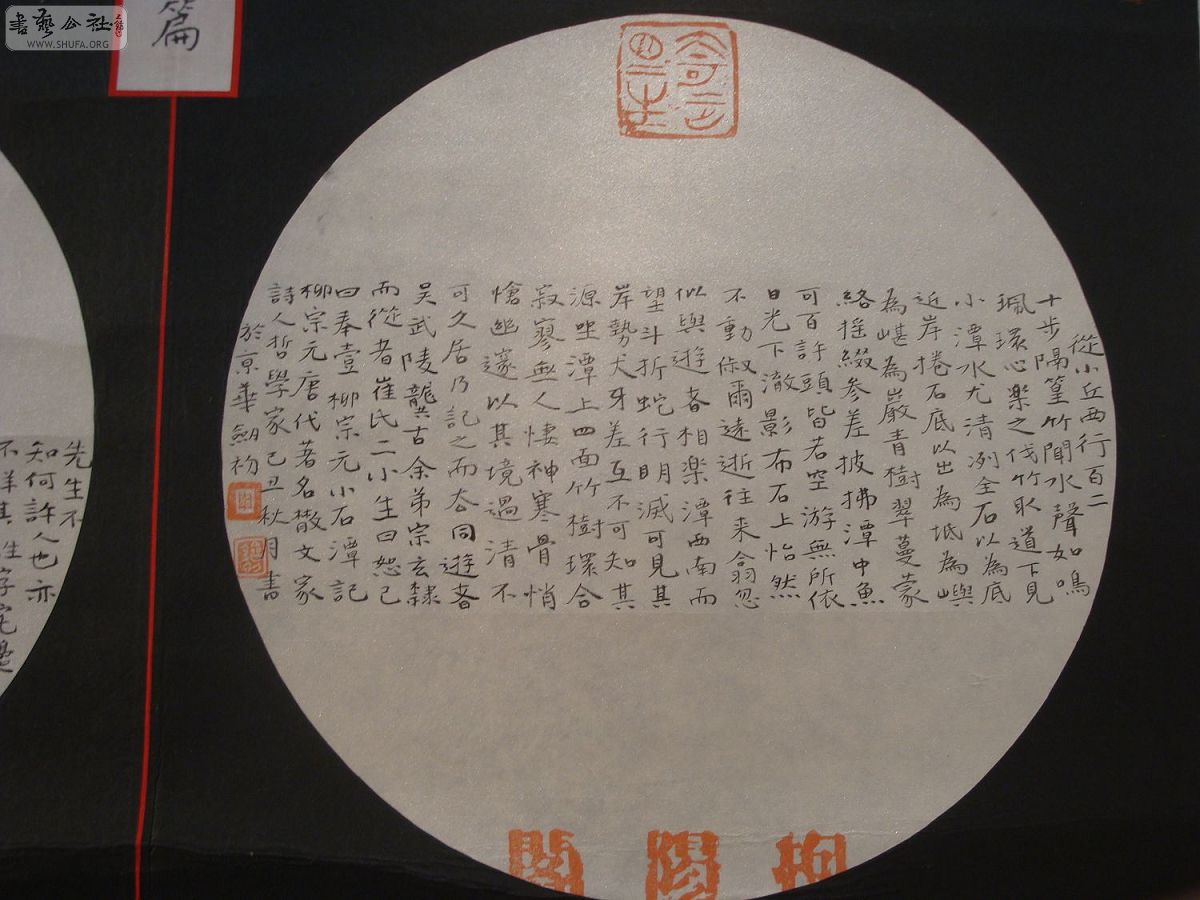 書藝公社
WWW.SHUFA.ORG
篇
從小丘西行百二
十步隔篁竹聞水聲如鳴
珮環心楽之伐竹取道下見
小潭水尤清冽全石以為底
近岸捲石底以出為坻為嶼
為嵁為巖青樹翠蔓蒙
絡摇綴參差披拂潭中魚
可百許頭皆若空游無所依
日光下澈影布石上怡然
不動俶爾遠逝往来翕忽
似與遊者相楽潭西南而
望斗折蛇行明滅可見其
岸勢犬牙差互不可知其
源坐潭上四面竹樹環合
寂寥無人悽神寒骨悄
愴幽邃以其境過清不
可久居乃記之而去同遊者
吴武陵龔古余弟宗玄隸
而從者崔氏二小生曰恕己
曰奉壹柳宗元小石潭記
柳宗元唐代著名散文家
詩人哲學家己丑秋月書
於京華劍
先生不
知何許人也亦
不詳其姓字宅邊